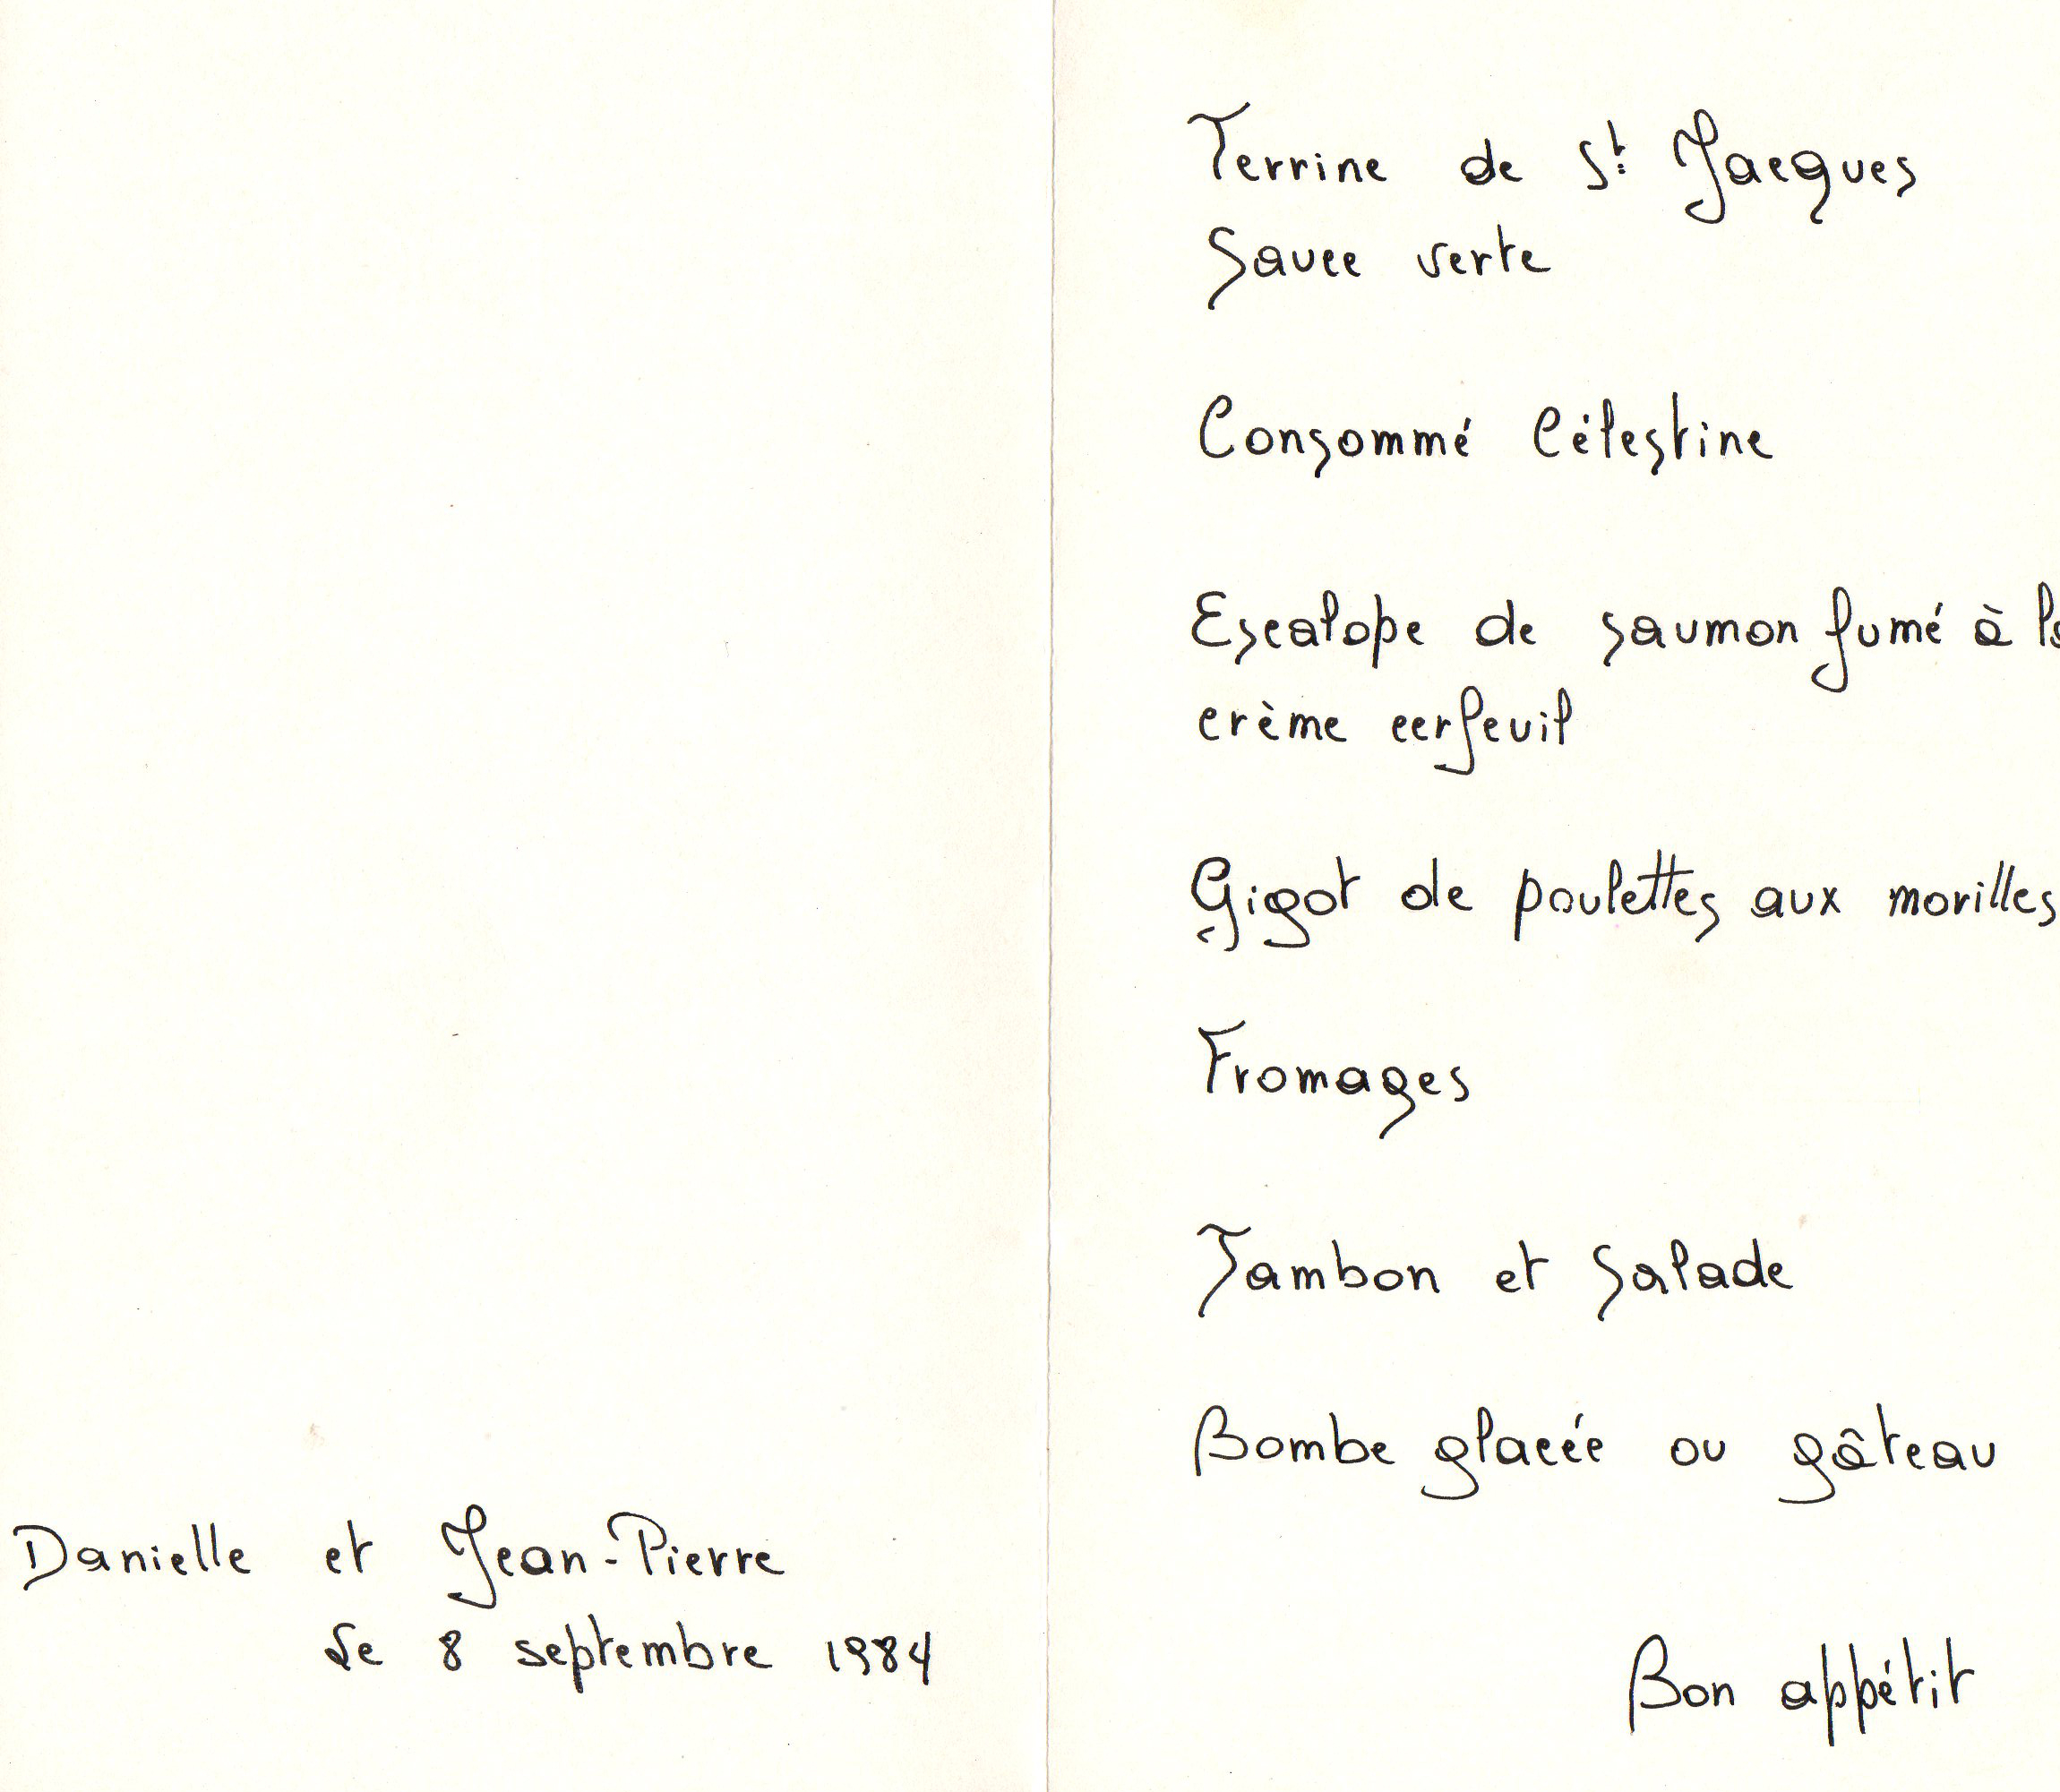 Danielle et Jean-Pierre
Le 8 septembre 1984
Terrine de St Jacques
Sauce verte
Consommé Célestine
Escalope de saumon fumé à la
crème cerfeuil
Gigot de poulettes aux morilles
Fromages
Jambon et Salade
Bombe glacée ou gâteau
Bon appétit